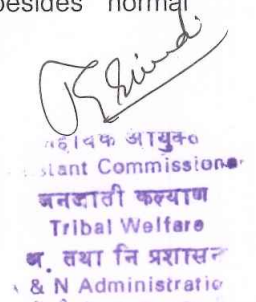 besides normal
आयुक्त
stant Commissioner
जनजाती कल्याण
Tribal Welfare
अ. तथा नि प्रशासन
& N Administratio